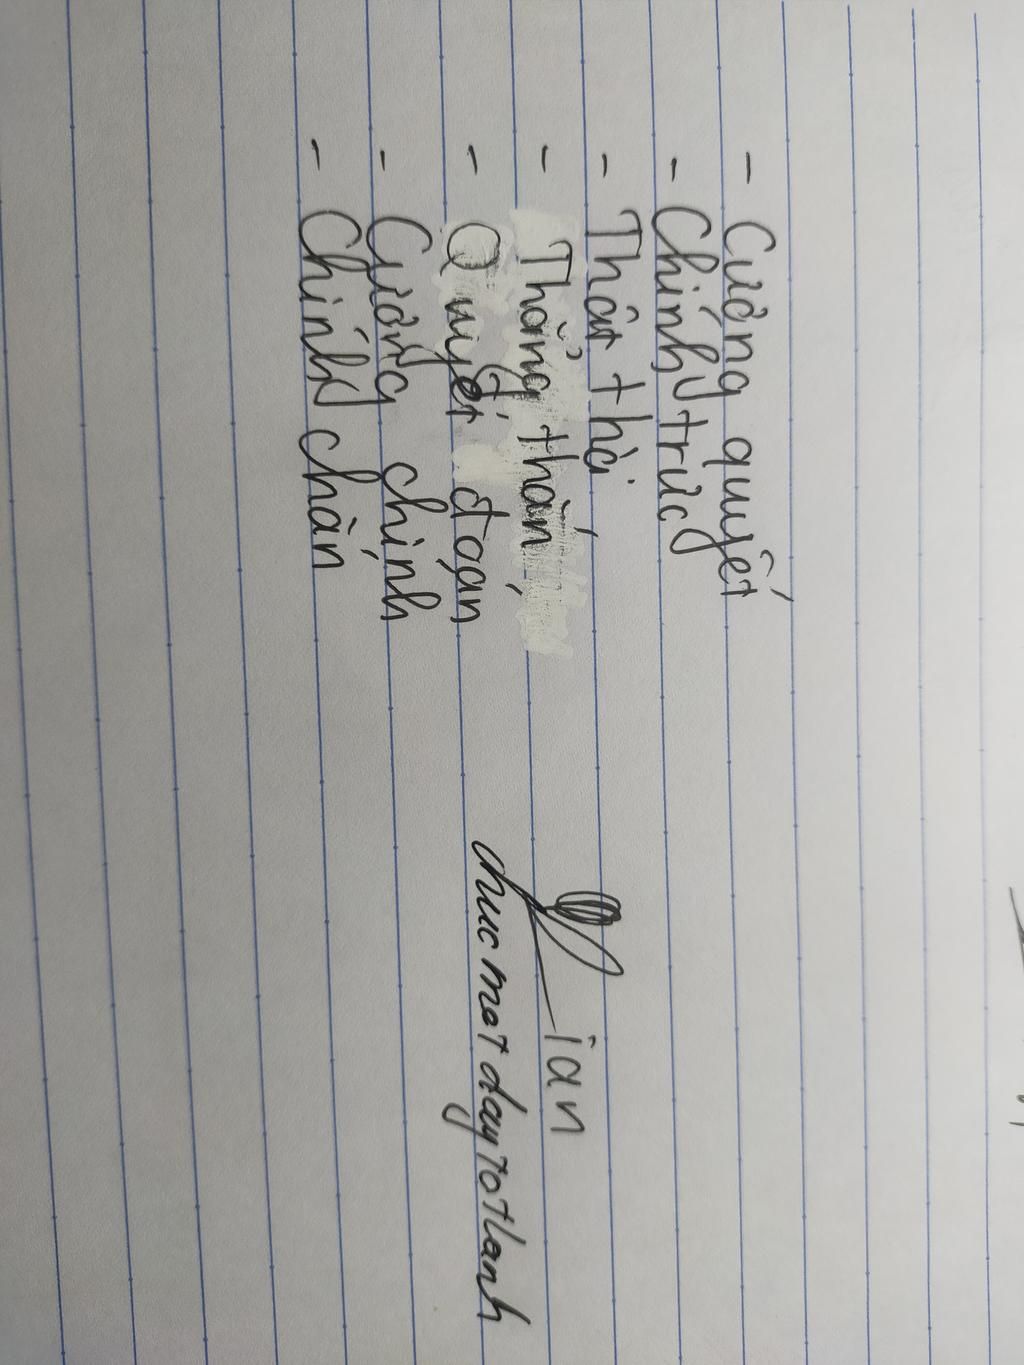 - Cường quyết
- Chính trực
- Thật thà
- Thẳng thắn
- Quyết đoán
- Cường chính
- Chính chắn
Lian
chuc mot day tot lanh